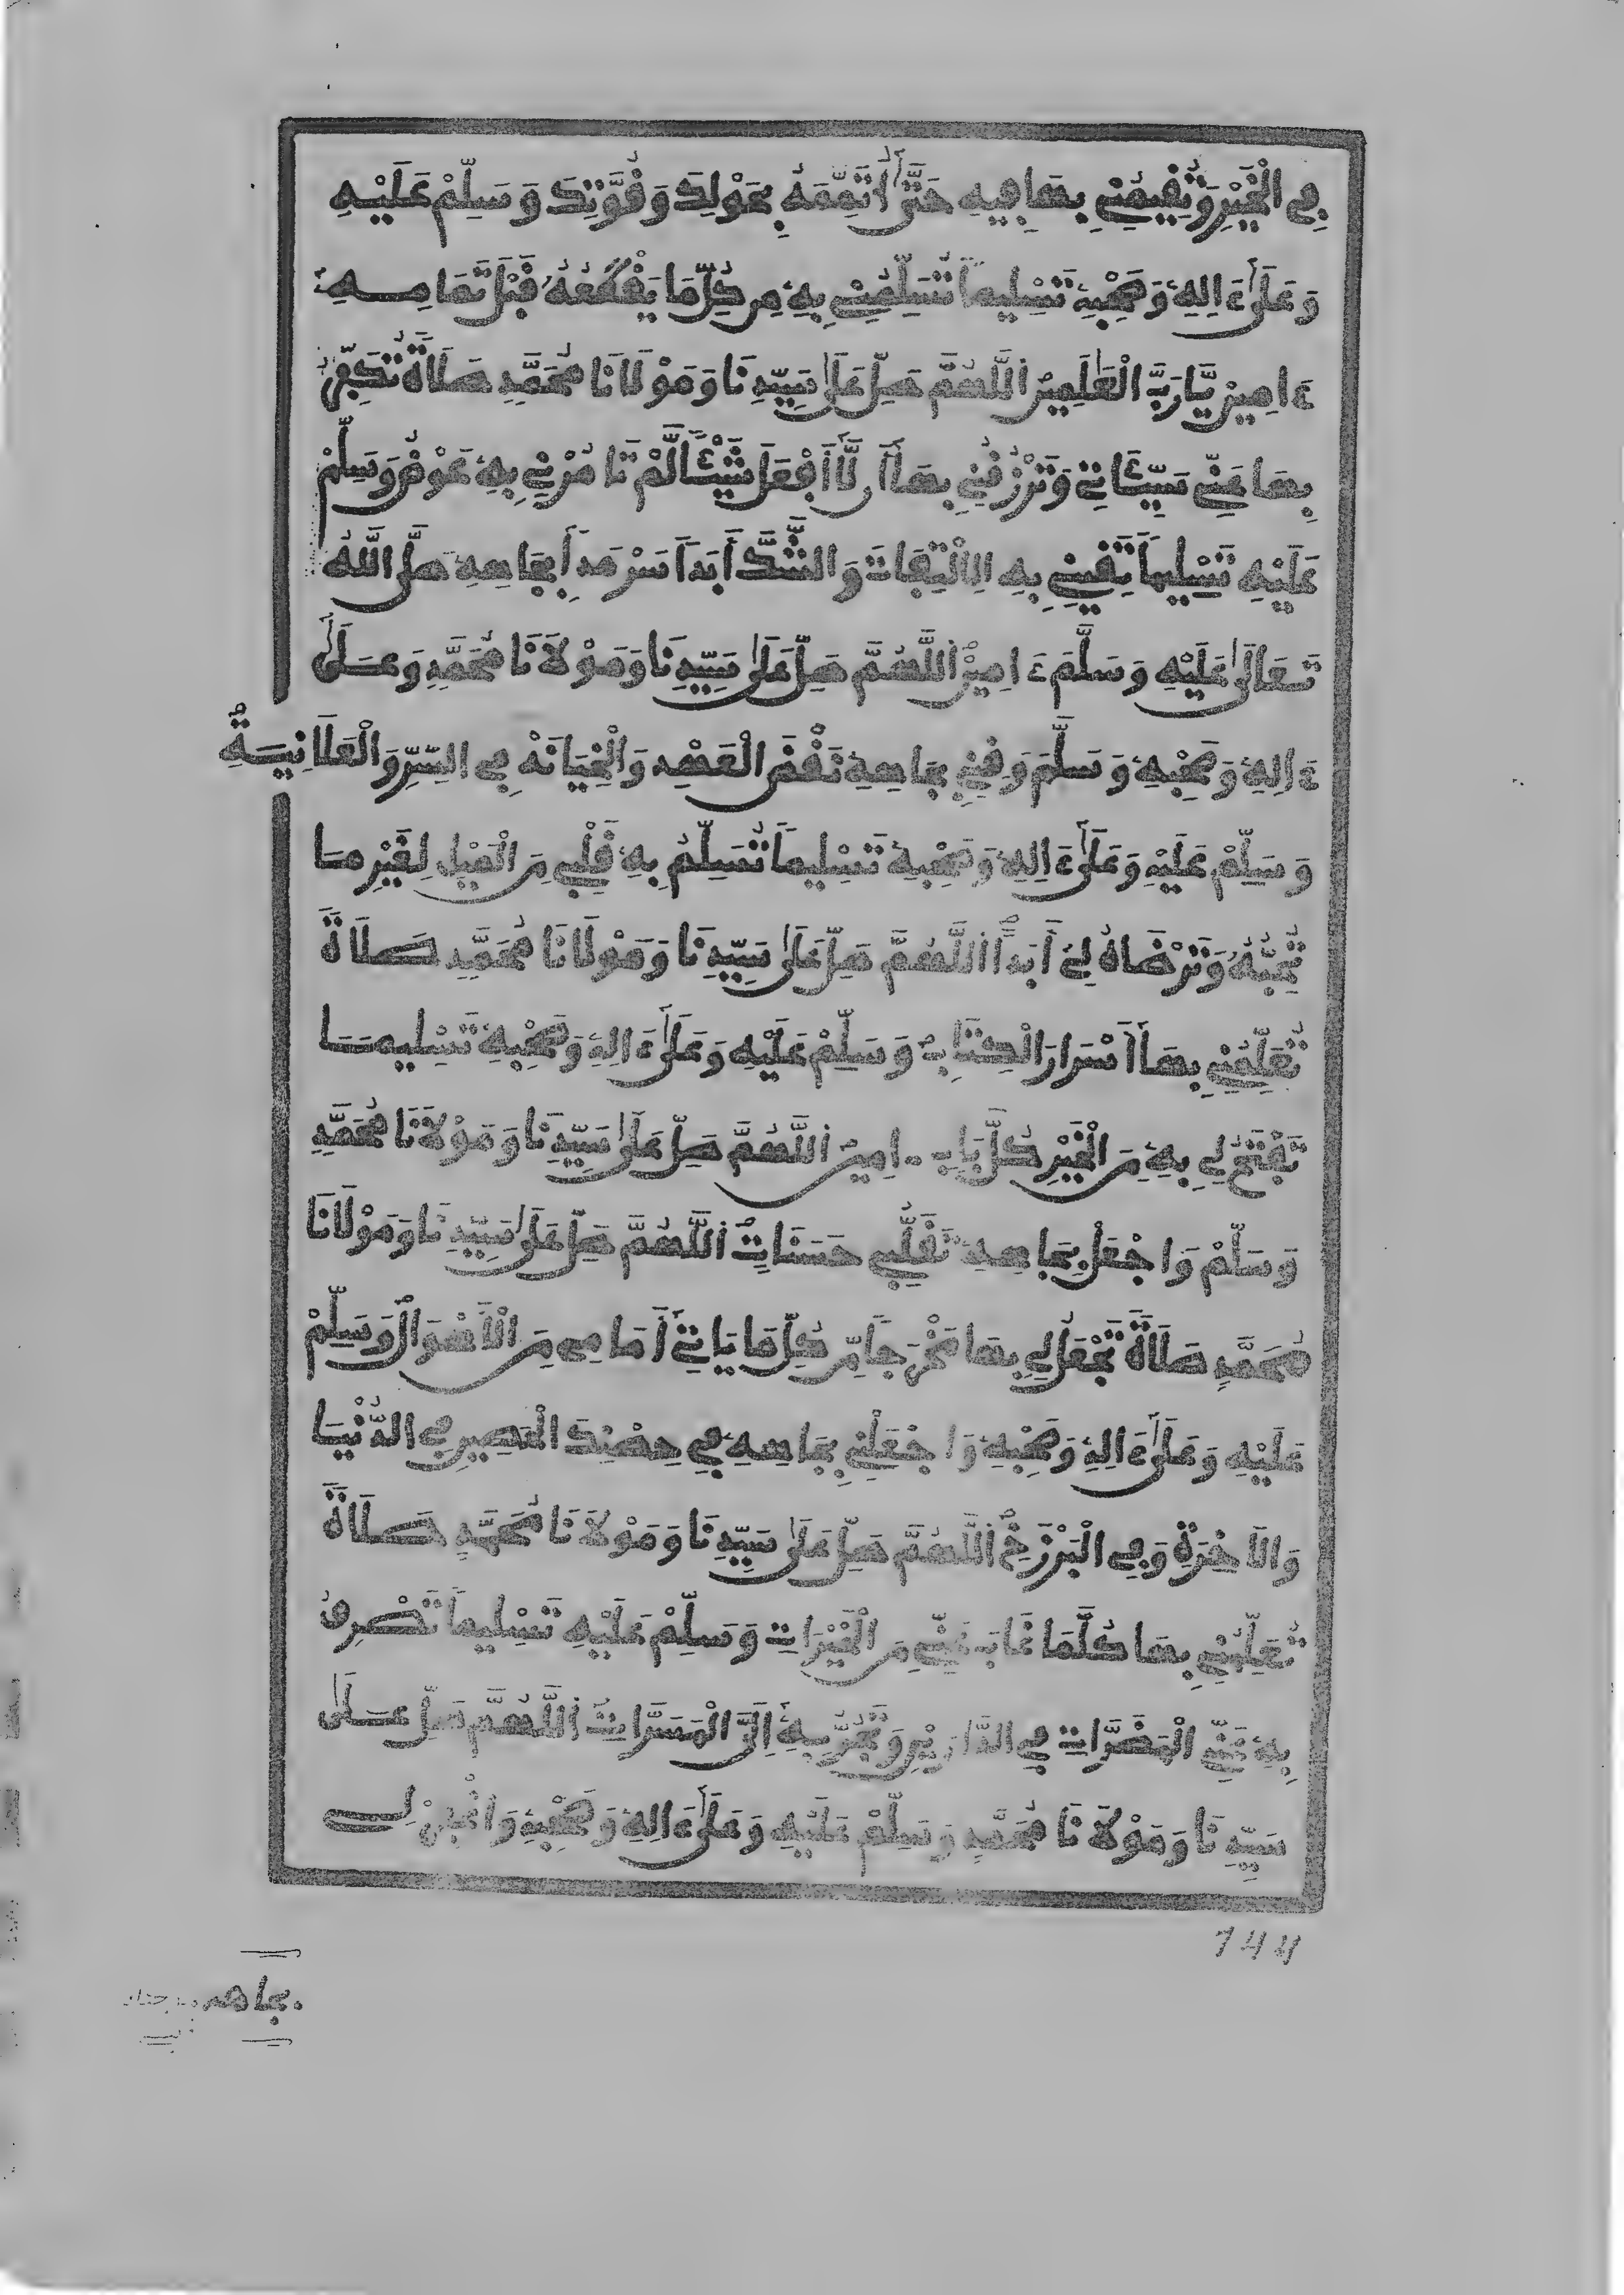 فِي الْخَيْرِ وَتُقِيمُنِي بِهَا فِيهِ حَتَّىٰ أُتَمِّمَهُ بِحَوْلِكَ وَقُوَّتِكَ وَسَلِّمْ عَلَيْهِ
وَعَلَىٰ ءَالِهِ وَصَحْبِهِ تَسْلِيماً تُسَلِّمُنِي بِهِ مِن كُلِّ مَا يَقْطَعُهُ قَبْلَ تَمَامِهِ
ءَامِين يَّارَبَّ الْعَٰلَمِينَ اللَّهُمَّ صَلِّ عَلَىٰ سَيِّدِنَا وَمَوْلَانَا مُحَمَّدٍ صَلَاةً تُكَفِّرُ
بِهَا عَنِّي سَيِّئَاتِي وَتَرْزُقُنِي بِهَا أَن لَّا أَفْعَلَ شَيْئاً لَّمْ تَامُرْنِي بِهِ عَوْضُ وَسَلِّمْ
عَلَيْهِ تَسْلِيماً تَقِينِي بِهِ الِالْتِفَاتَ وَالشَّكَّ أَبَداً سَرْمَداً بِجَاهِهِ صَلَّى اللَّهُ
تَعَالَىٰ عَلَيْهِ وَسَلَّمَ ءَامِينَ اللَّهُمَّ صَلِّ عَلَىٰ سَيِّدِنَا وَمَوْلَانَا مُحَمَّدٍ وَعَلَىٰ
ءَالِهِ وَصَحْبِهِ وَسَلَّمَ وَقِنِي بِجَاهِهِ نَقْضَ الْعَهْدِ وَالْخِيَانَةَ فِي السِّرِّ وَالْعَلَانِيَةِ
وَسَلِّمْ عَلَيْهِ وَعَلَىٰ ءَالِهِ وَصَحْبِهِ تَسْلِيماً تُسَلِّمُ بِهِ قَلْبِي مِنَ الْمَيْلِ لِغَيْرِ مَا
تُحِبُّهُ وَتَرْضَاهُ لِي أَبَداً اللَّهُمَّ صَلِّ عَلَىٰ سَيِّدِنَا وَمَوْلَانَا مُحَمَّدٍ صَلَاةً
تُعَلِّمُنِي بِهَا أَسْرَارَ الْكِتَابِ وَسَلِّمْ عَلَيْهِ وَعَلَىٰ ءَالِهِ وَصَحْبِهِ تَسْلِيمَا
تَفْتَحُ لِي بِهِ مِنَ الْخَيْرِ كُلَّ بَابٍ ءَامِينَ اللَّهُمَّ صَلِّ عَلَىٰ سَيِّدِنَا وَمَوْلَانَا مُحَمَّدٍ
وَسَلِّمْ وَاجْعَلْ بِجَاهِهِ تَقَلُّبِي حَسَنَاتٍ اللَّهُمَّ صَلِّ عَلَىٰ سَيِّدِنَا وَمَوْلَانَا
مُحَمَّدٍ صَلَاةً تَجْعَلُ لِي بِهَا مَخْرَجاً مِّن كُلِّ مَا يَاتِي أَمَامِي مِنَ الْأَهْوَالِ وَسَلِّمْ
عَلَيْهِ وَعَلَىٰ ءَالِهِ وَصَحْبِهِ وَاجْعَلْنِي بِجَاهِهِ فِي حِصْنِكَ الْحَصِينِ فِي الدُّنْيَا
وَالْآخِرَةِ وَفِي الْبَرْزَخِ اللَّهُمَّ صَلِّ عَلَىٰ سَيِّدِنَا وَمَوْلَانَا مُحَمَّدٍ صَلَاةً
تُعَلِّمُنِي بِهَا كُلَّمَا غَابَ عَنِّي مِنَ الْخَيْرَاتِ وَسَلِّمْ عَلَيْهِ تَسْلِيماً تَصْرِفُ
بِهِ عَنِّي الْمَضَرَّاتِ فِي الدَّارَيْنِ وَتَجُرُّ بِهِ إِلَيَّ الْمَسَرَّاتِ اللَّهُمَّ صَلِّ عَلَىٰ
سَيِّدِنَا وَمَوْلَانَا مُحَمَّدٍ وَسَلِّمْ عَلَيْهِ وَعَلَىٰ ءَالِهِ وَصَحْبِهِ وَاغْفِرْ لِي
144
بجاهه